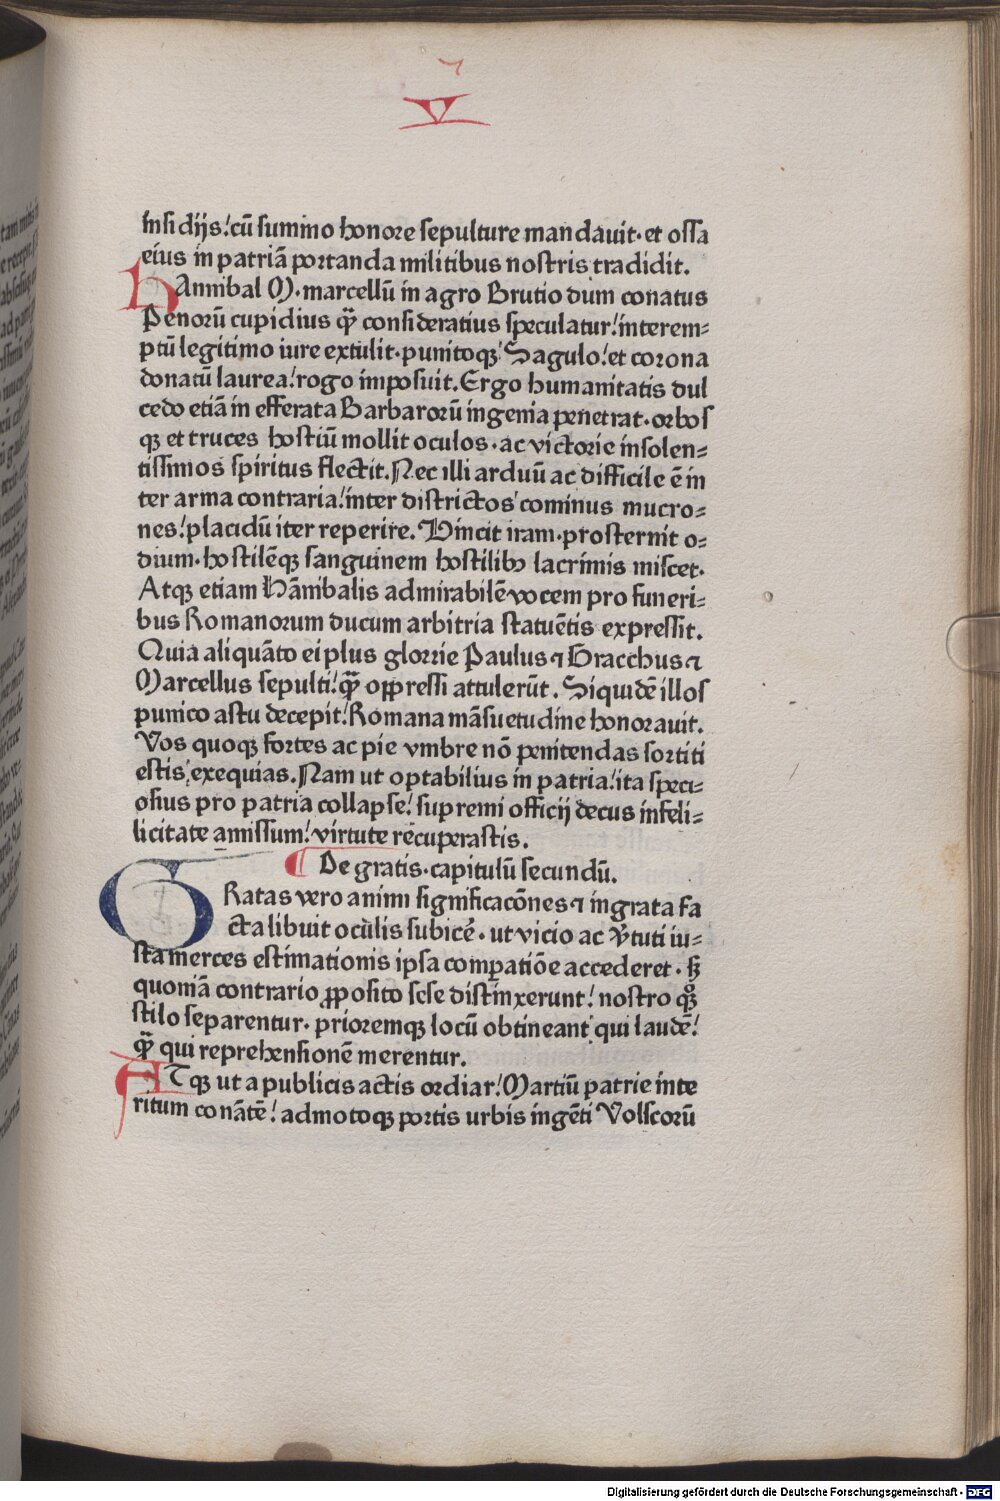 V
insidijs! cū summo honore sepulture mandauit· et ossa
eius in patriā portanda militibus nostris tradidit.
hAnnibal M· marcellū in agro Brutio dum conatus
Penorū cupidius q̄ꝫ consideratius speculatur! interem=
ptū legitimo iure extulit· punitoqꝫ Sagulo! et corona
donatū laurea! rogo imposuit. Ergo humanitatis dul
cedo etiā in efferata Barbarorū ingenia penetrat· orbos
qꝫ et truces hostiū mollit oculos· ac victorie insolen=
tissimos spiritus flectit. Nec illi arduū ac difficile ē in
ter arma contraria! inter districtos cominus mucro=
nes! placidū iter reperire. Vincit iram· prosternit o=
dium· hostilēqꝫ sanguinem hostilibꝫ lacrimis miscet.
Atqꝫ etiam Hānibalis admirabilē vocem pro funeri=
bus Romanorum ducum arbitria statuētis expressit.
Quia aliquāto ei plus glorrie Paulus ⁊ Gracchus ⁊
Marcellus sepulti! q̄ꝫ oppressi attulerūt. Siquidē illos
punico astu decepit! Romana māsuetudine honorauit.
Vos quoqꝫ fortes ac pie vmbre nō penitendas sortiti
estis exequias. Nam ut optabilius in patria! ita speci=
osius pro patria collapse! supremi officij decus infeli=
licitate amissum! virtute recuperastis.
¶ De gratis· capitulū secundū.
GRatas vero animi significacōnes ⁊ ingrata fa
cta libuit oculis subicē· ut vicio ac v̄tuti iu=
sta merces estimationis ipsa compatiōe accederet· sꝫ
quoniā contrario ꝓposito sese distinxerunt! nostro qꝫ
stilo separentur· prioremqꝫ locū obtineant qui laudē!
q̄ꝫ qui reprehensionē merentur.
ATqꝫ ut a publicis actis ordiar! Martiū patrie inte
ritum conātē! admotoqꝫ portis urbis ingēti Volscorū
Digitalisierung gefördert durch die Deutsche Forschungsgemeinschaft - DFG